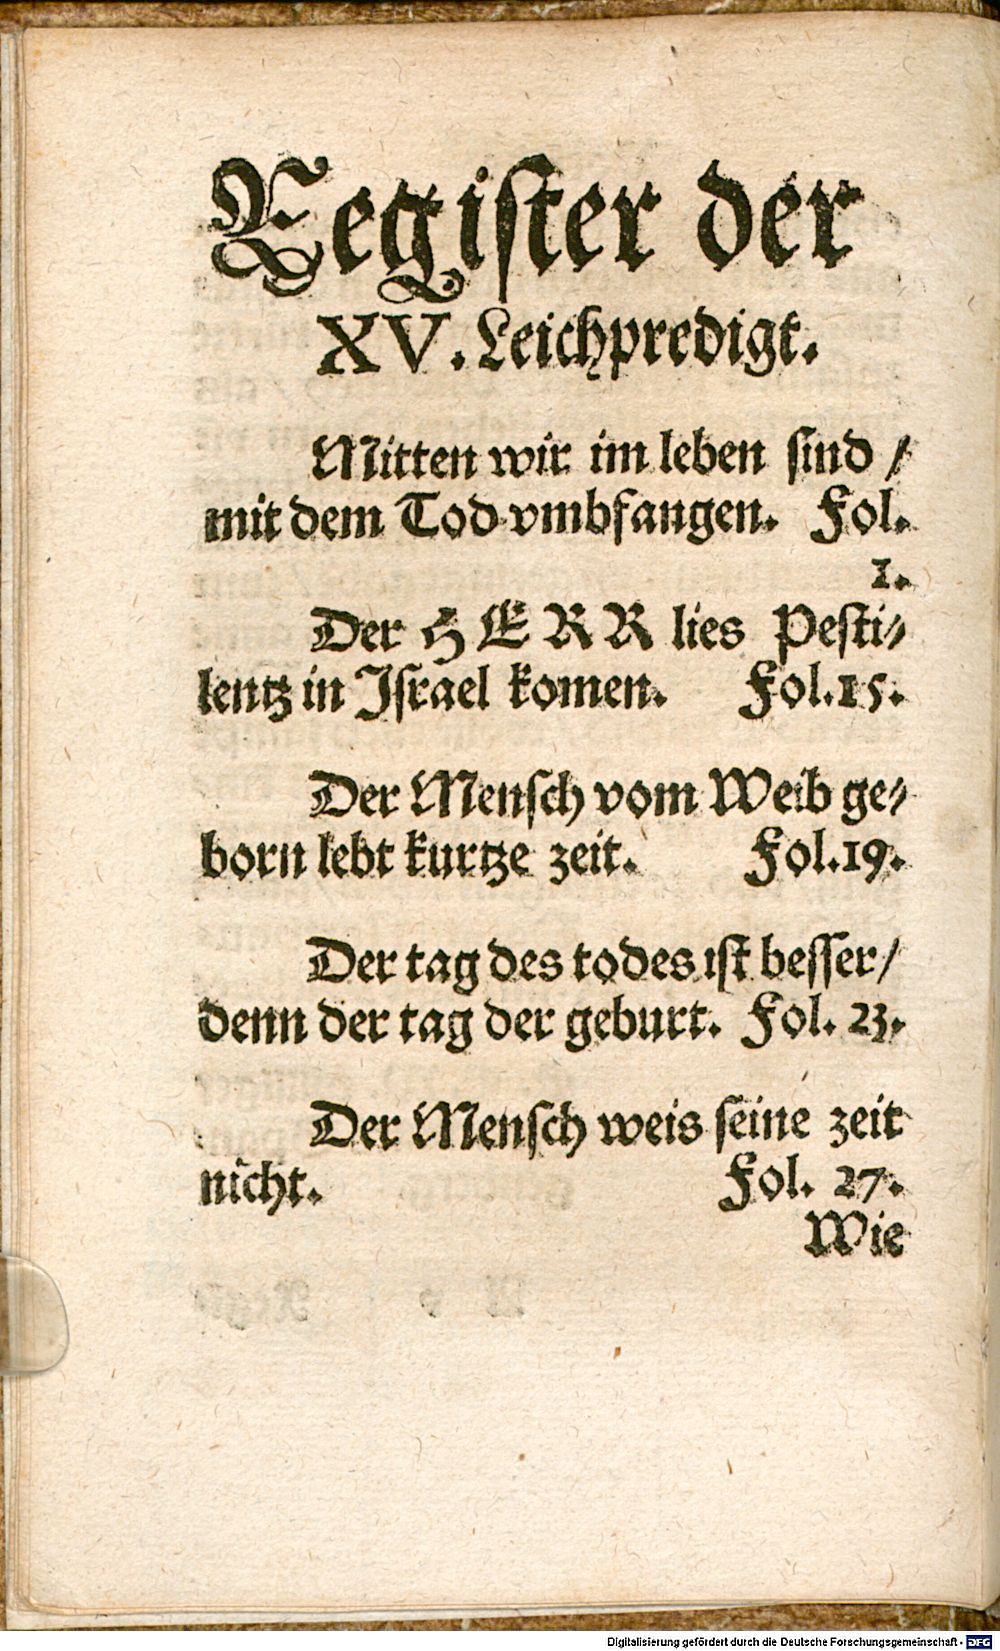 Register der
XV. Leichpredigt.
Mitten wir im leben sind /
mit dem Tod vmbfangen. Fol.
1.
Der HERR lies Pesti⸗
lentz in Israel komen. Fol. 15.
Der Mensch vom Weib ge⸗
born lebt kurtze zeit. Fol. 19.
Der tag des todes ist besser /
denn der tag der geburt. Fol. 23.
Der Mensch weis seine zeit
nicht. Fol. 27.
Wie
Digitalisierung gefördert durch die Deutsche Forschungsgemeinschaft - DFG